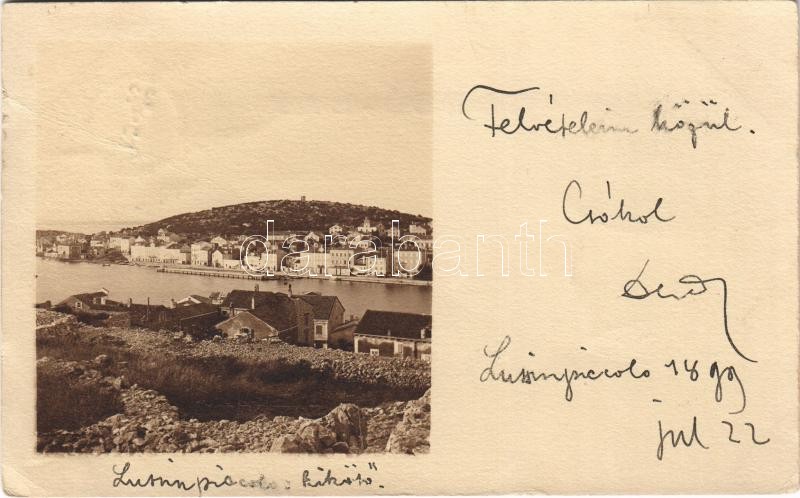 Felvételeim közül.
Csókol
Lussinpiccolo 1899
jul 22
Lussinpiccolo: kikötő.
darabanth